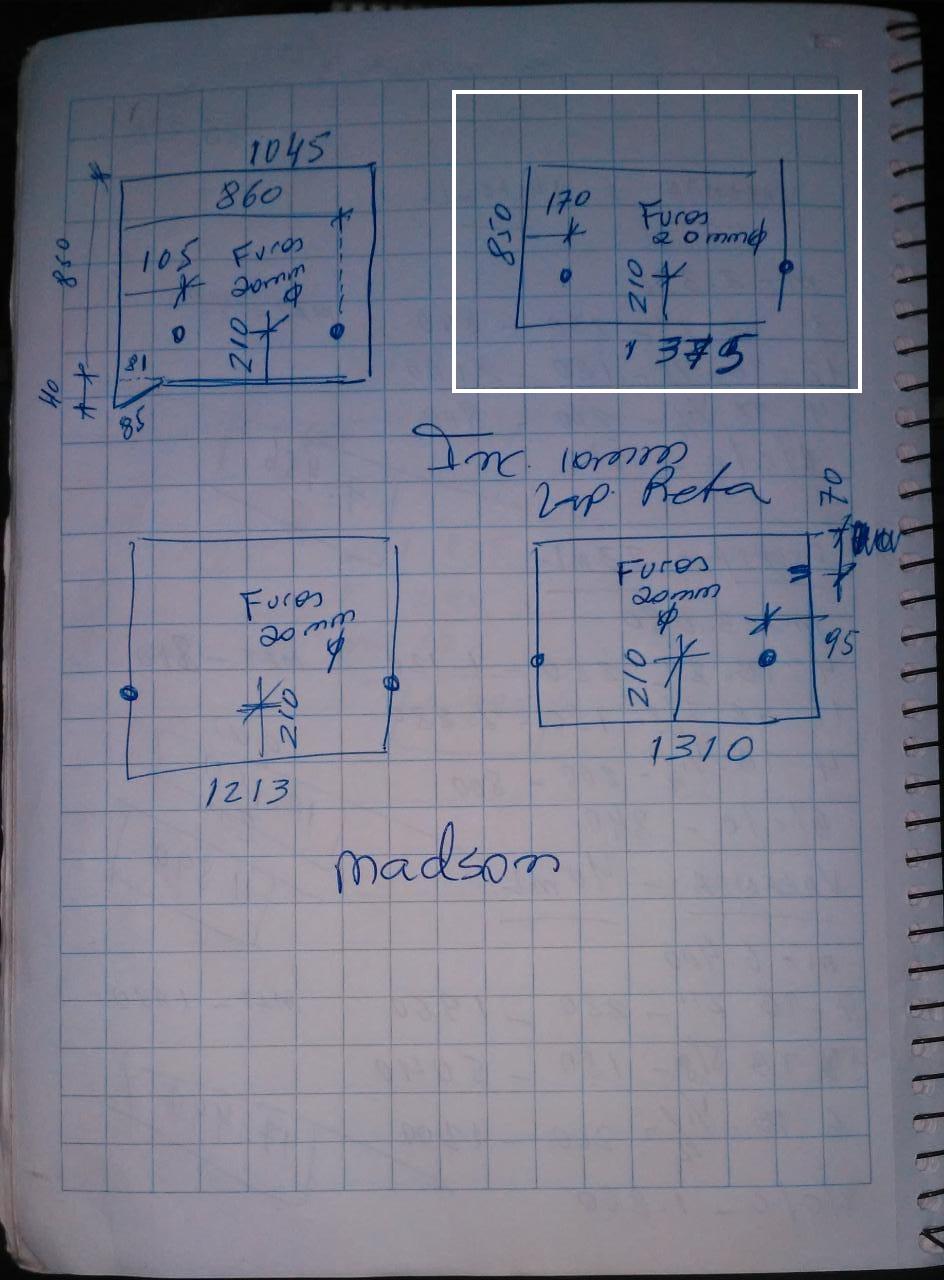 1045
860
850
105
Furos
20mm
φ
210
81
40
85
850
170
Furos
20mmφ
210
1375
Inc. 10mm
Lap. Reta
Furos
20mm
φ
210
1213
70
Furos
20mm
φ
210
95
1310
madson